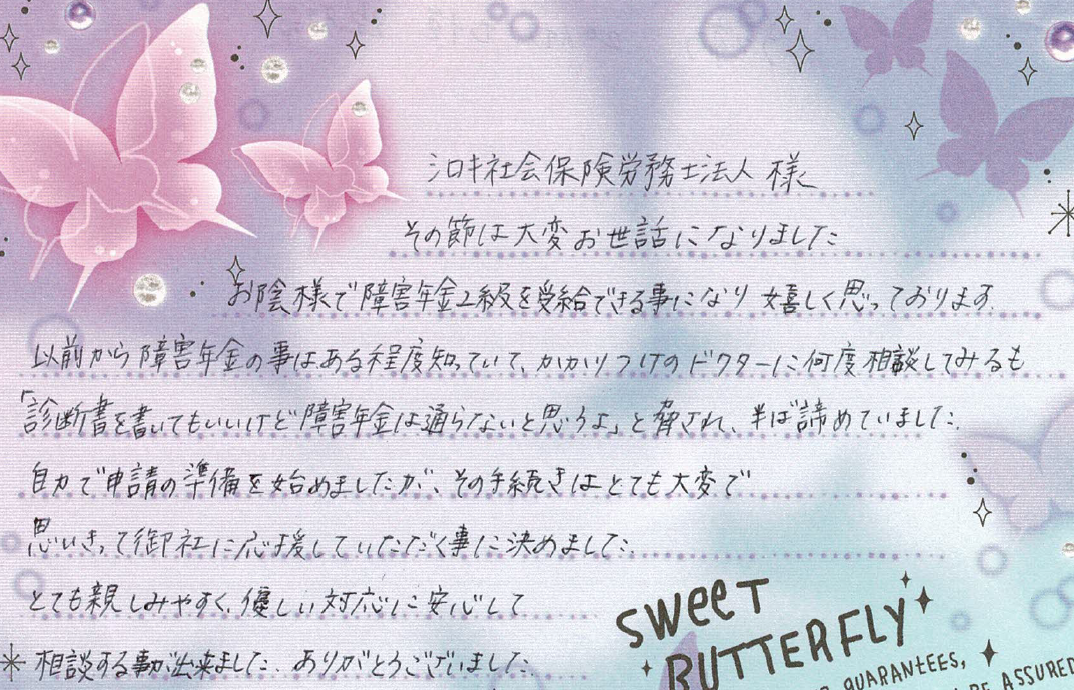 シロキ社会保険労務士法人 様
その節は大変お世話になりました
お陰様で障害年金2級を受給できる事になり 嬉しく思っております。
以前から障害年金の事はある程度知っていて、かかりつけのドクターに何度相談してみるも
「診断書を書いてもいいけど障害年金は通らないと思うよ」と脅され、半ば諦めていました。
自力で申請の準備を始めましたが、その手続きはとても大変で
思いきって御社に応援していただく事に決めました。
とても親しみやすく、優しい対応に安心して
相談する事が出来ました。ありがとうございました。
SWEET
BUTTERFLY
GUARANTEES,
BE ASSURED